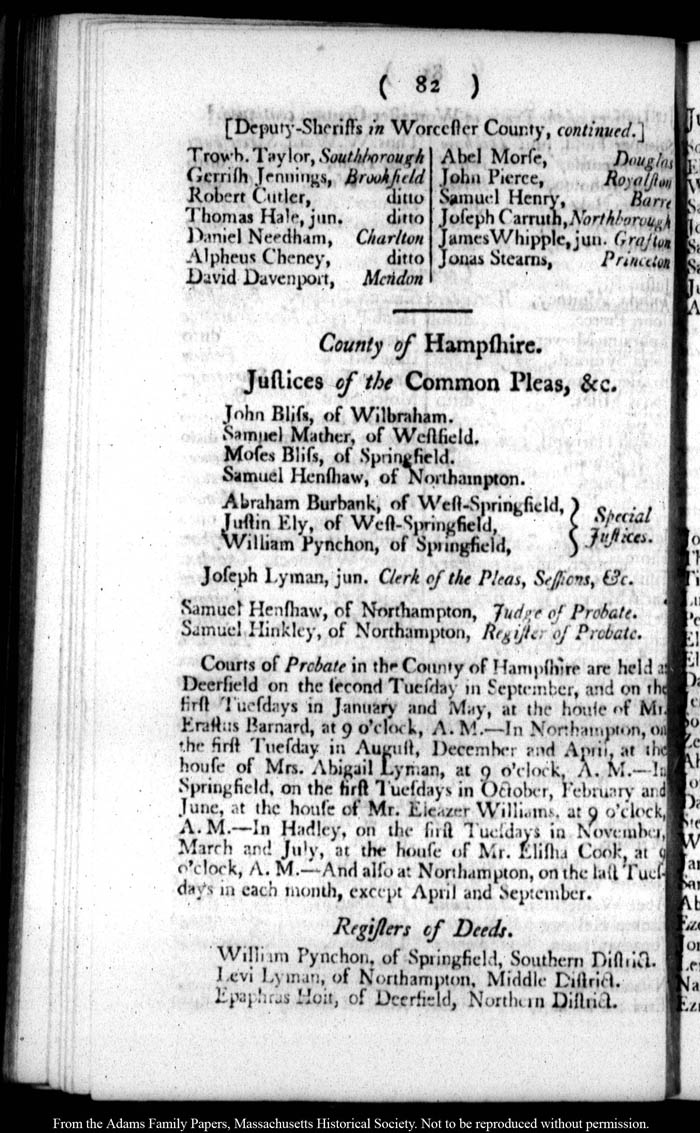 ( 82 )
[Deputy-Sheriffs in Worceſter County, continued.]
Trowb. Taylor, Southborough
Gerriſh Jennings, Brookfield
Robert Cutler, ditto
Thomas Hale, jun. ditto
Daniel Needham, Charlton
Alpheus Cheney, ditto
David Davenport, Mendon
Abel Morſe, Douglas
John Pierce, Royalſton
Samuel Henry, Barre
Joſeph Carruth, Northborough
James Whipple, jun. Grafton
Jonas Stearns, Princeton
County of Hampſhire.
Juſtices of the Common Pleas, &c.
John Bliſs, of Wilbraham.
Samuel Mather, of Weſtfield.
Moſes Bliſs, of Springfield.
Samuel Henſhaw, of Northampton.
Abraham Burbank, of Weſt-Springfield,
Juſtin Ely, of Weſt-Springfield,
William Pynchon, of Springfield,
} Special
Juſtices.
Joſeph Lyman, jun. Clerk of the Pleas, Seſſions, &c.
Samuel Henſhaw, of Northampton, Judge of Probate.
Samuel Hinkley, of Northampton, Regiſter of Probate.
Courts of Probate in the County of Hampſhire are held at
Deerfield on the ſecond Tueſday in September, and on the
firſt Tueſdays in January and May, at the houſe of Mr.
Eraſtus Barnard, at 9 o'clock, A. M.—In Northampton, on
the firſt Tueſday in Auguſt, December and April, at the
houſe of Mrs. Abigail Lyman, at 9 o'clock, A. M.—In
Springfield, on the firſt Tueſdays in October, February and
June, at the houſe of Mr. Eleazer Williams, at 9 o'clock,
A. M.—In Hadley, on the firſt Tueſdays in November,
March and July, at the houſe of Mr. Eliſha Cook, at 9
o'clock, A. M.—And alſo at Northampton, on the laſt Tueſ-
days in each month, except April and September.
Regiſters of Deeds.
William Pynchon, of Springfield, Southern Diſtrict.
Levi Lyman, of Northampton, Middle Diſtrict.
Epaphras Hoit, of Deerfield, Northern Diſtrict.
From the Adams Family Papers, Massachusetts Historical Society. Not to be reproduced without permission.